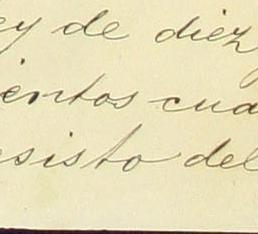 ey de diez
ientos cua
esisto del